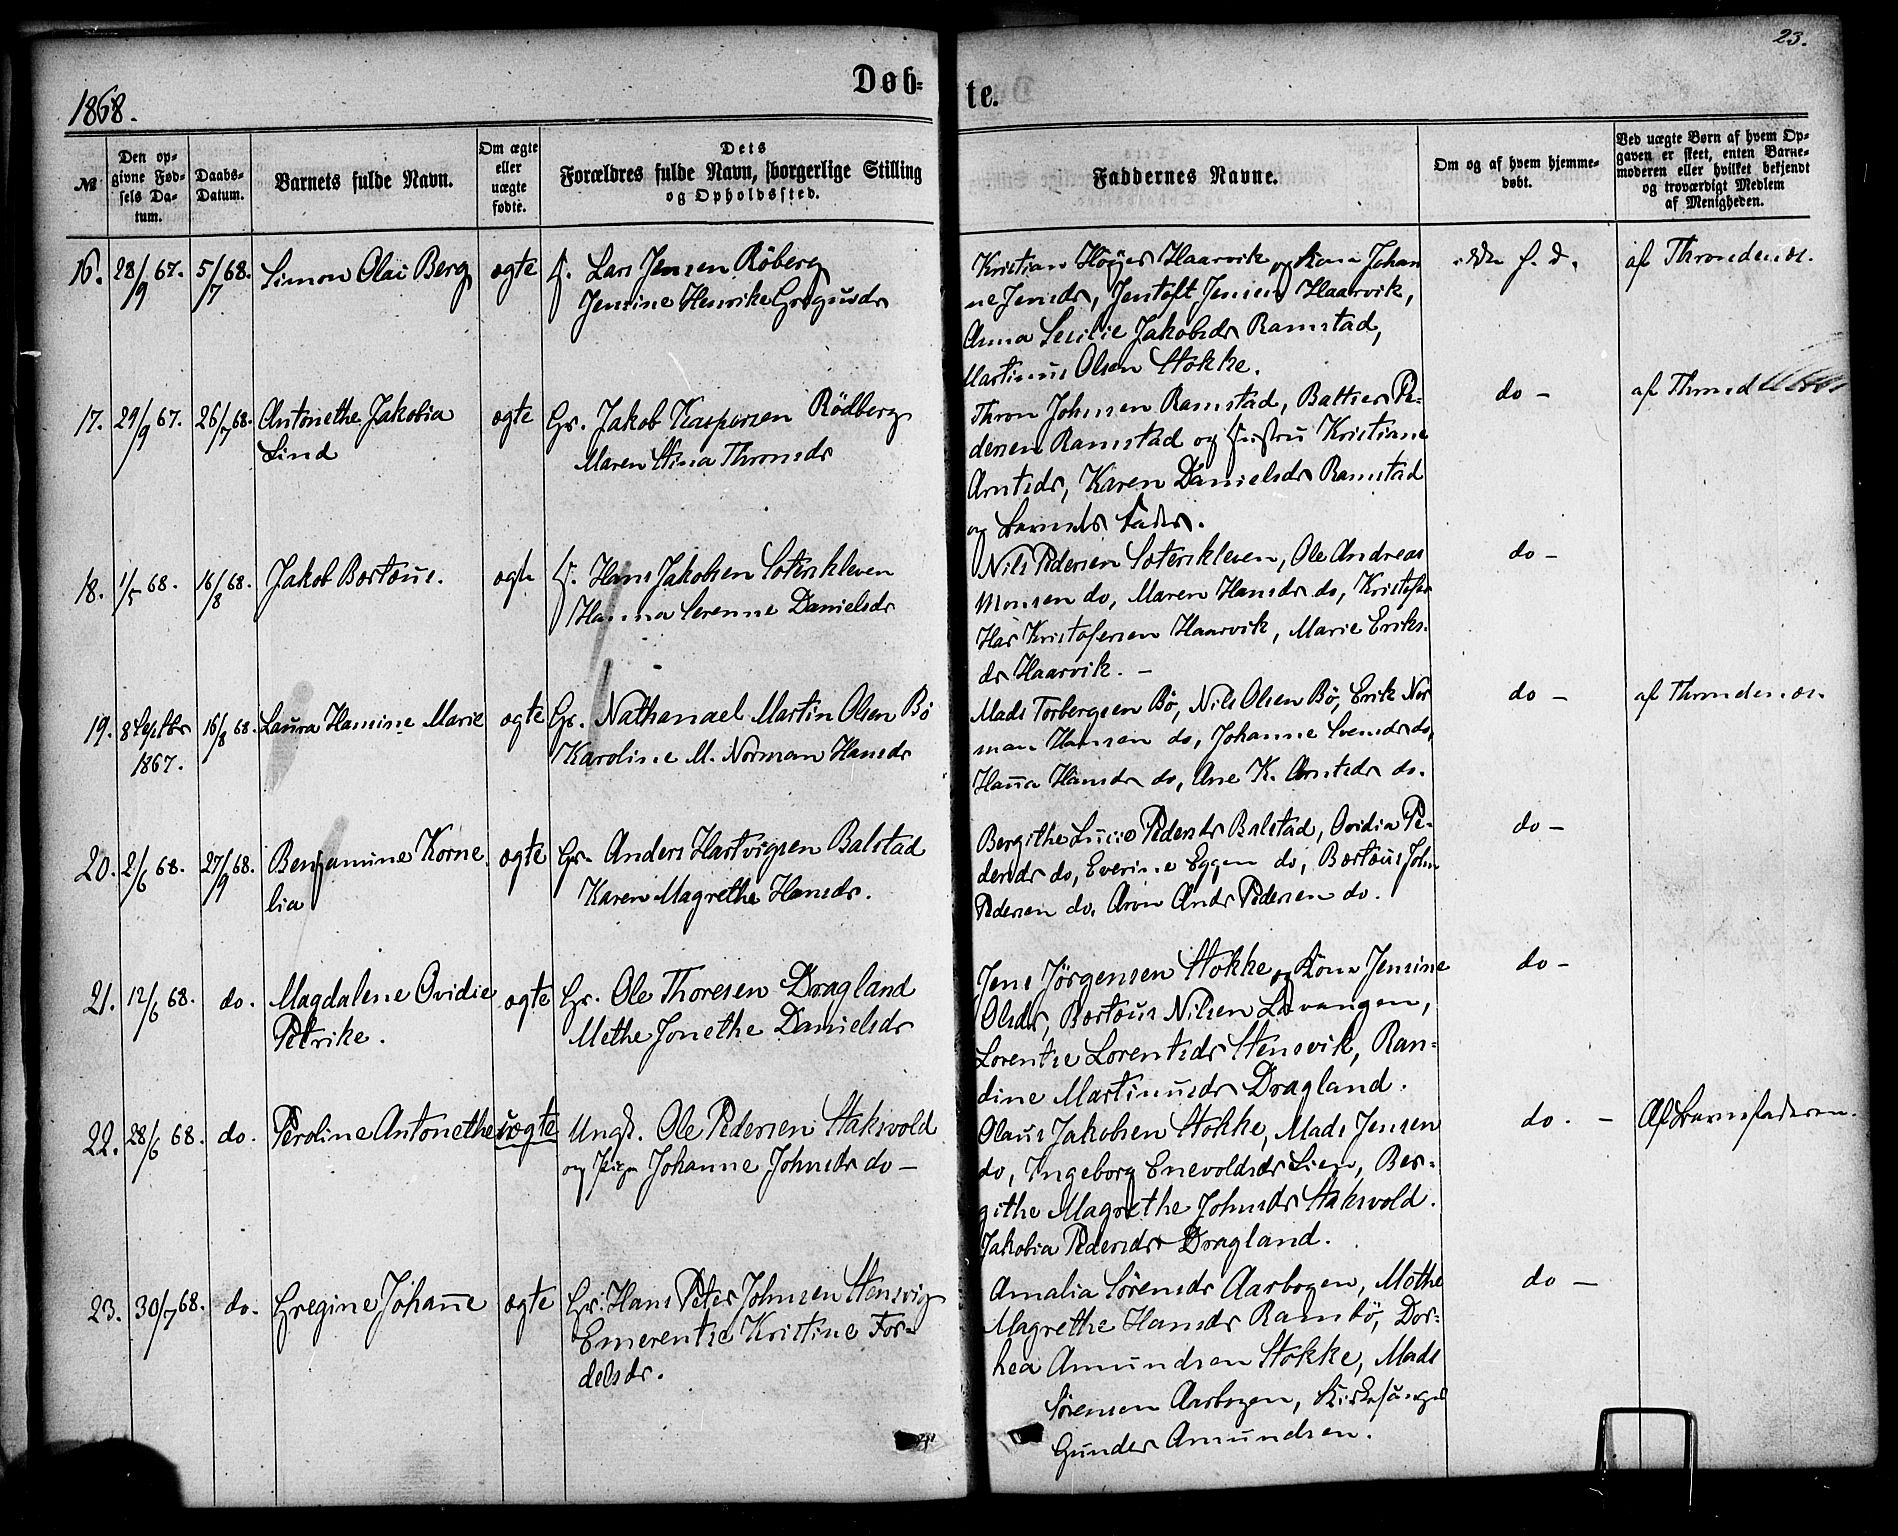 23.
1868.
Døb-
te.
№
Den opgivne Fødsels Datum.
Daabs-Datum.
Barnets fulde Navn.
Om ægte eller uægte fødte.
Dets Forældres fulde Navn, borgerlige Stilling og Opholdssted.
Faddernes Navne.
Om og af hvem hjemmedøbt.
Ved uægte Børn af hvem Opgaven er skeet, enten Barnemoderen eller hvilket bekjendt og troværdigt Medlem af Menigheden.
16. 28/9 67. 5/7 68. Simon Olai Berg ægte F. Lars Jensen Röberg
Jensine Henrike Gregusdr
Kristian Höyer Haarvik og Kone Johan
ne Jensdr, Jentoft Jensen Haarvik,
Anna Secilie Jakobsdr Ramstad,
Martinus Olsen Stokke.
af Throndenæs.
17. 29/9 67. 26/7 68. Antonethe Jakobia
Lind
ægte Gr. Jakob Kaspersen Rödberg
Maren Stina Thronsdr
Thron Johnsen Ramstad, Baltser Pe-
dersen Ramstad og Hustru Kristiane
Arntsdr, Karen Danielsdr Ramstad
og Barnets Fader.
do -
af Thrond
18. 1/5 68. 16/8 68. Jakob Bertéus. ægte F. Hans Jakobsen Sæterskleven
Hanna Serenne Danielsdr
Nils Pedersen Sæterskleven, Ole Andreas
Monsen do, Maren Hansdr do, Kristofer
Hår Kristofersen Haarvik, Marie Eriks-
dr Haarvik. -
do -
19. 8 Septbr
1867.
16/8 68. Laura Hamine Marie ægte Gr. Nathanael Martin Olsen Bö
Karoline M. Norman Hansdr
Mads Torbergsen Bø, Nils Olsen Bø, Erik Nor
man Hansen do, Johanne Svensdr do,
Hanna Hansdr do, Ane K. Arntsdr do.
do -
af Throndenæs.
20. 2/6 68. 27/9 68. Benjamine Korne
lia
ægte Gr. Anders Hartvigsen Balstad
Karen Magrethe Hansdr.
Bergithe Lucie Pedersdr Balstad, Ovidia Pe-
dersdr do, Everine Eggen do, Bertéus John
Pedersen do, Aron Andr Pedersen do.
do -
21. 12/6 68. do. Magdalene Ovidie
Petrike.
ægte Gr. Ole Thoresen Dragland
Methe Jonethe Danielsdr
Jens Jörgensen Stokke og Kone Jensine
Olsdr, Bertéus Nilsen Lavangen,
Lorentse Lorentsdr Stensvik, Ran-
dine Martinusdr Dragland.
do -
22. 28/6 68. do. Peroline Antonethe uægte Ungk. Ole Pedersen Staksvold
og Pige Johanne Johnsdr do -
Olaus Jakobsen Stokke, Mads Jensen
do, Ingeborg Enevoldsdr Lien, Ber-
githe Magrethe Johnsdr Staksvold.
Jakobia Pedersdr Dragland.
do. -
Af Barnefaderen.
23. 30/7 68. do. Gregine Johanne ægte Gr. Hans Peter Johnsen Stensvig
Emerentse Kristine For-
delsdr.
Amalia Sörensdr Aarbogen, Methe
Magrethe Hansdr Rambö, Dor-
hea Amundsen Stokke, Mads
Sörensen Aarbogen, Kirkesanger
Gunder Amundsen.
do -